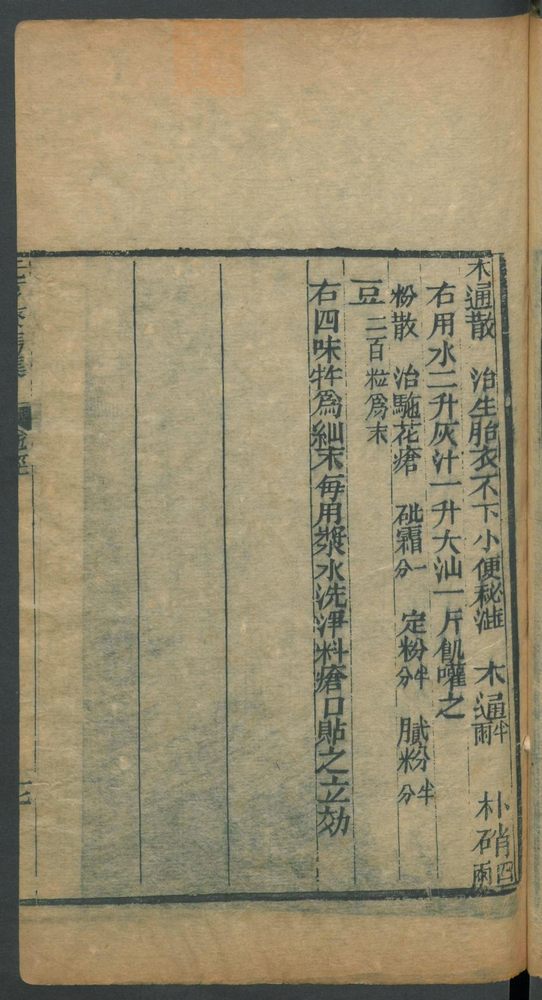 木通散 治生胎衣不下小便秘澁 木通半兩 朴硝四兩
右用水二升灰汁一升大油一斤飢嚾之
粉散 治駞花瘡 砒霜一分 定粉半分 膩粉半分
豆二百粒爲末
右四味牪爲細末每用漿水洗淨料瘡口貼之立効